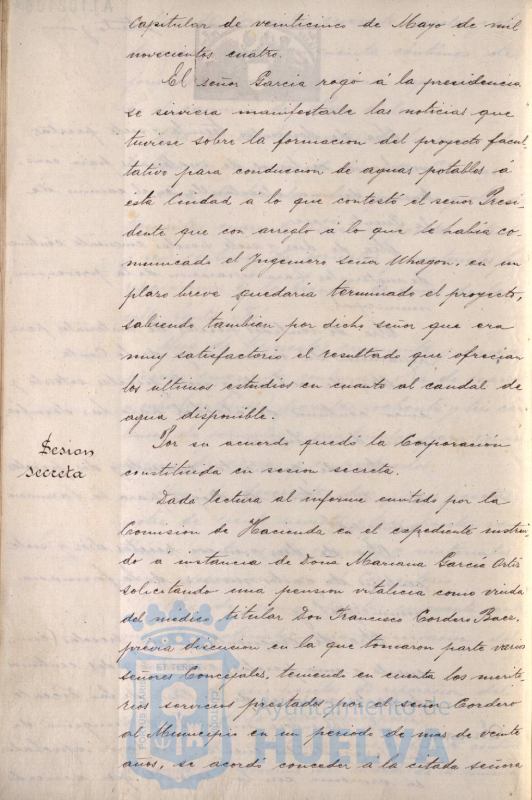 Capitular de veinticinco de Mayo de mil
novecientos cuatro.
El señor García rogó á la presidencia
se sirviera manifestarle las noticias que
tuviese sobre la formacion del proyecto facul-
tativo para conduccion de aguas potables á
esta Ciudad á lo que contestó el señor Presi-
dente que con arreglo á lo que le había co-
municado el Ingeniero señor Uhagon, en un
plazo breve quedaría terminado el proyecto,
sabiendo tambien por dicho señor que era
muy satisfactorio el resultado que ofrecian
los últimos estudios en cuanto al caudal de
agua disponible.
Sesion
secreta
Por su acuerdo quedó la Corporación
constituida en sesion secreta.
Dada lectura al informe emitido por la
Comision de Hacienda en el expediente instrui-
do a instancia de Doña Mariana García Ortiz
solicitando una pension vitalicia como viuda
del médico titular Don Francisco Cordero Baes,
prévia discusion en la que tomaron parte varios
señores Concejales, teniendo en cuenta los merito-
rios servicios prestados por el señor Cordero
al Municipio en un periodo de mas de veinte
años, se acordó conceder á la citada señora
Ayuntamiento de
HUELVA